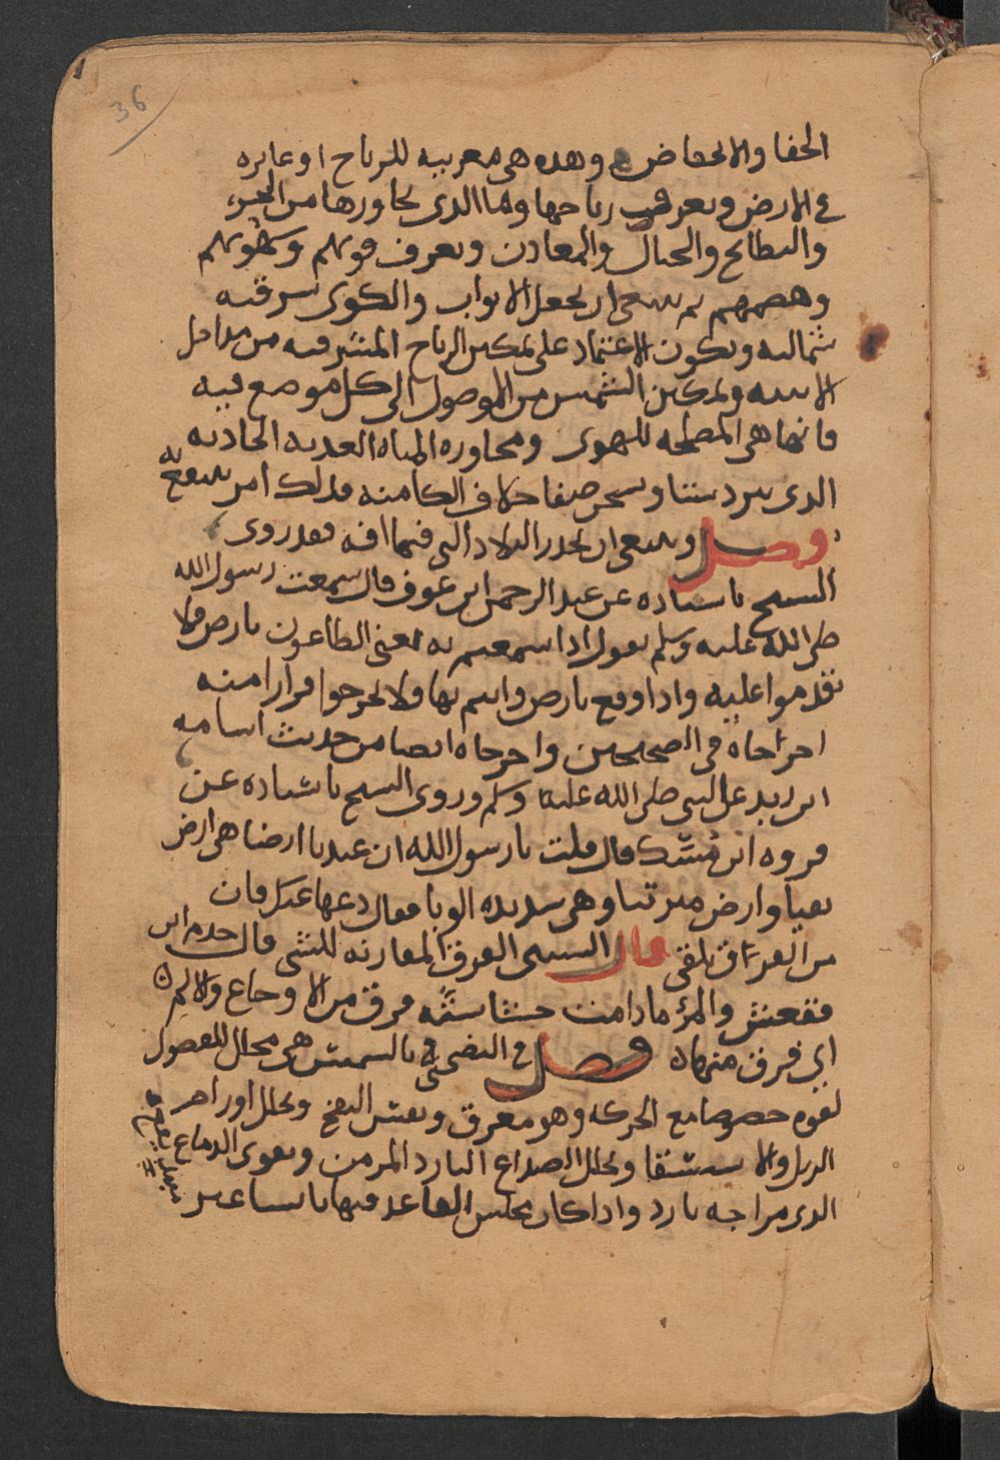 36
الخفا والانخفاض وهذه هي معربيه للرياح او غايره
في الارض ويعرف رياحها وما الذي يجاورها من البحر
والبطائح والجبال والمعادن ويعرف قوتهم وشهوتهم
وهضمهم ثم ينبغي ان يجعل الابواب والكوى شرقيه
شماليه ويكون الاعتماد على تمكين الرياح المشرقيه من مداخل
الابنيه وتمكين الشمس من الوصول الى كل موضع فيه
فانها هي المصلحه للهوى ومجاوره المياه العذبه الجاريه
الذي يبرد شتا ويسخن صيفا خلاف الكامنه فذلك امر ينتفع به
فصل وينبغي ان يحذر البلاد التي فيها افه فقد روى
الشيخ باسناده عن عبد الرحمن ابن عوف قال سمعت رسول الله
صلى الله عليه وسلم يقول اذا سمعتم به يعني الطاعون بارض فلا
تقدموا عليه واذا وقع بارض وانتم بها فلا تخرجوا فرارا منه
اخرجاه في الصحيحين واخرجاه ايضا من حديث اسامه
ابن زيد عن النبي صلى الله عليه وسلم وروى الشيخ باسناده عن
فروه ابن مسيك قال قلت يا رسول الله ان عندنا ارضا هي ارض
وارض ميرتنا وهي شديده الوبا فقال دعها عنك فان
من القرف تلقى قال القرف المقارنه للشي قال
والمرؤ ما دامت حشاشته فرق من الاوجاع والالم
اي فرق منهاه فصل في التضحي في بالشمس هي محلل للفضول
بقوه خصوصا مع الحركه وهو معرق ويفش النفخ ويحلل اورام
والاستسقا ويحلل الصداع البارد المزمن ويقوى الدماع
الذي مزاجه بارد واذا كان مجلس القاعد فيها يابسا غير